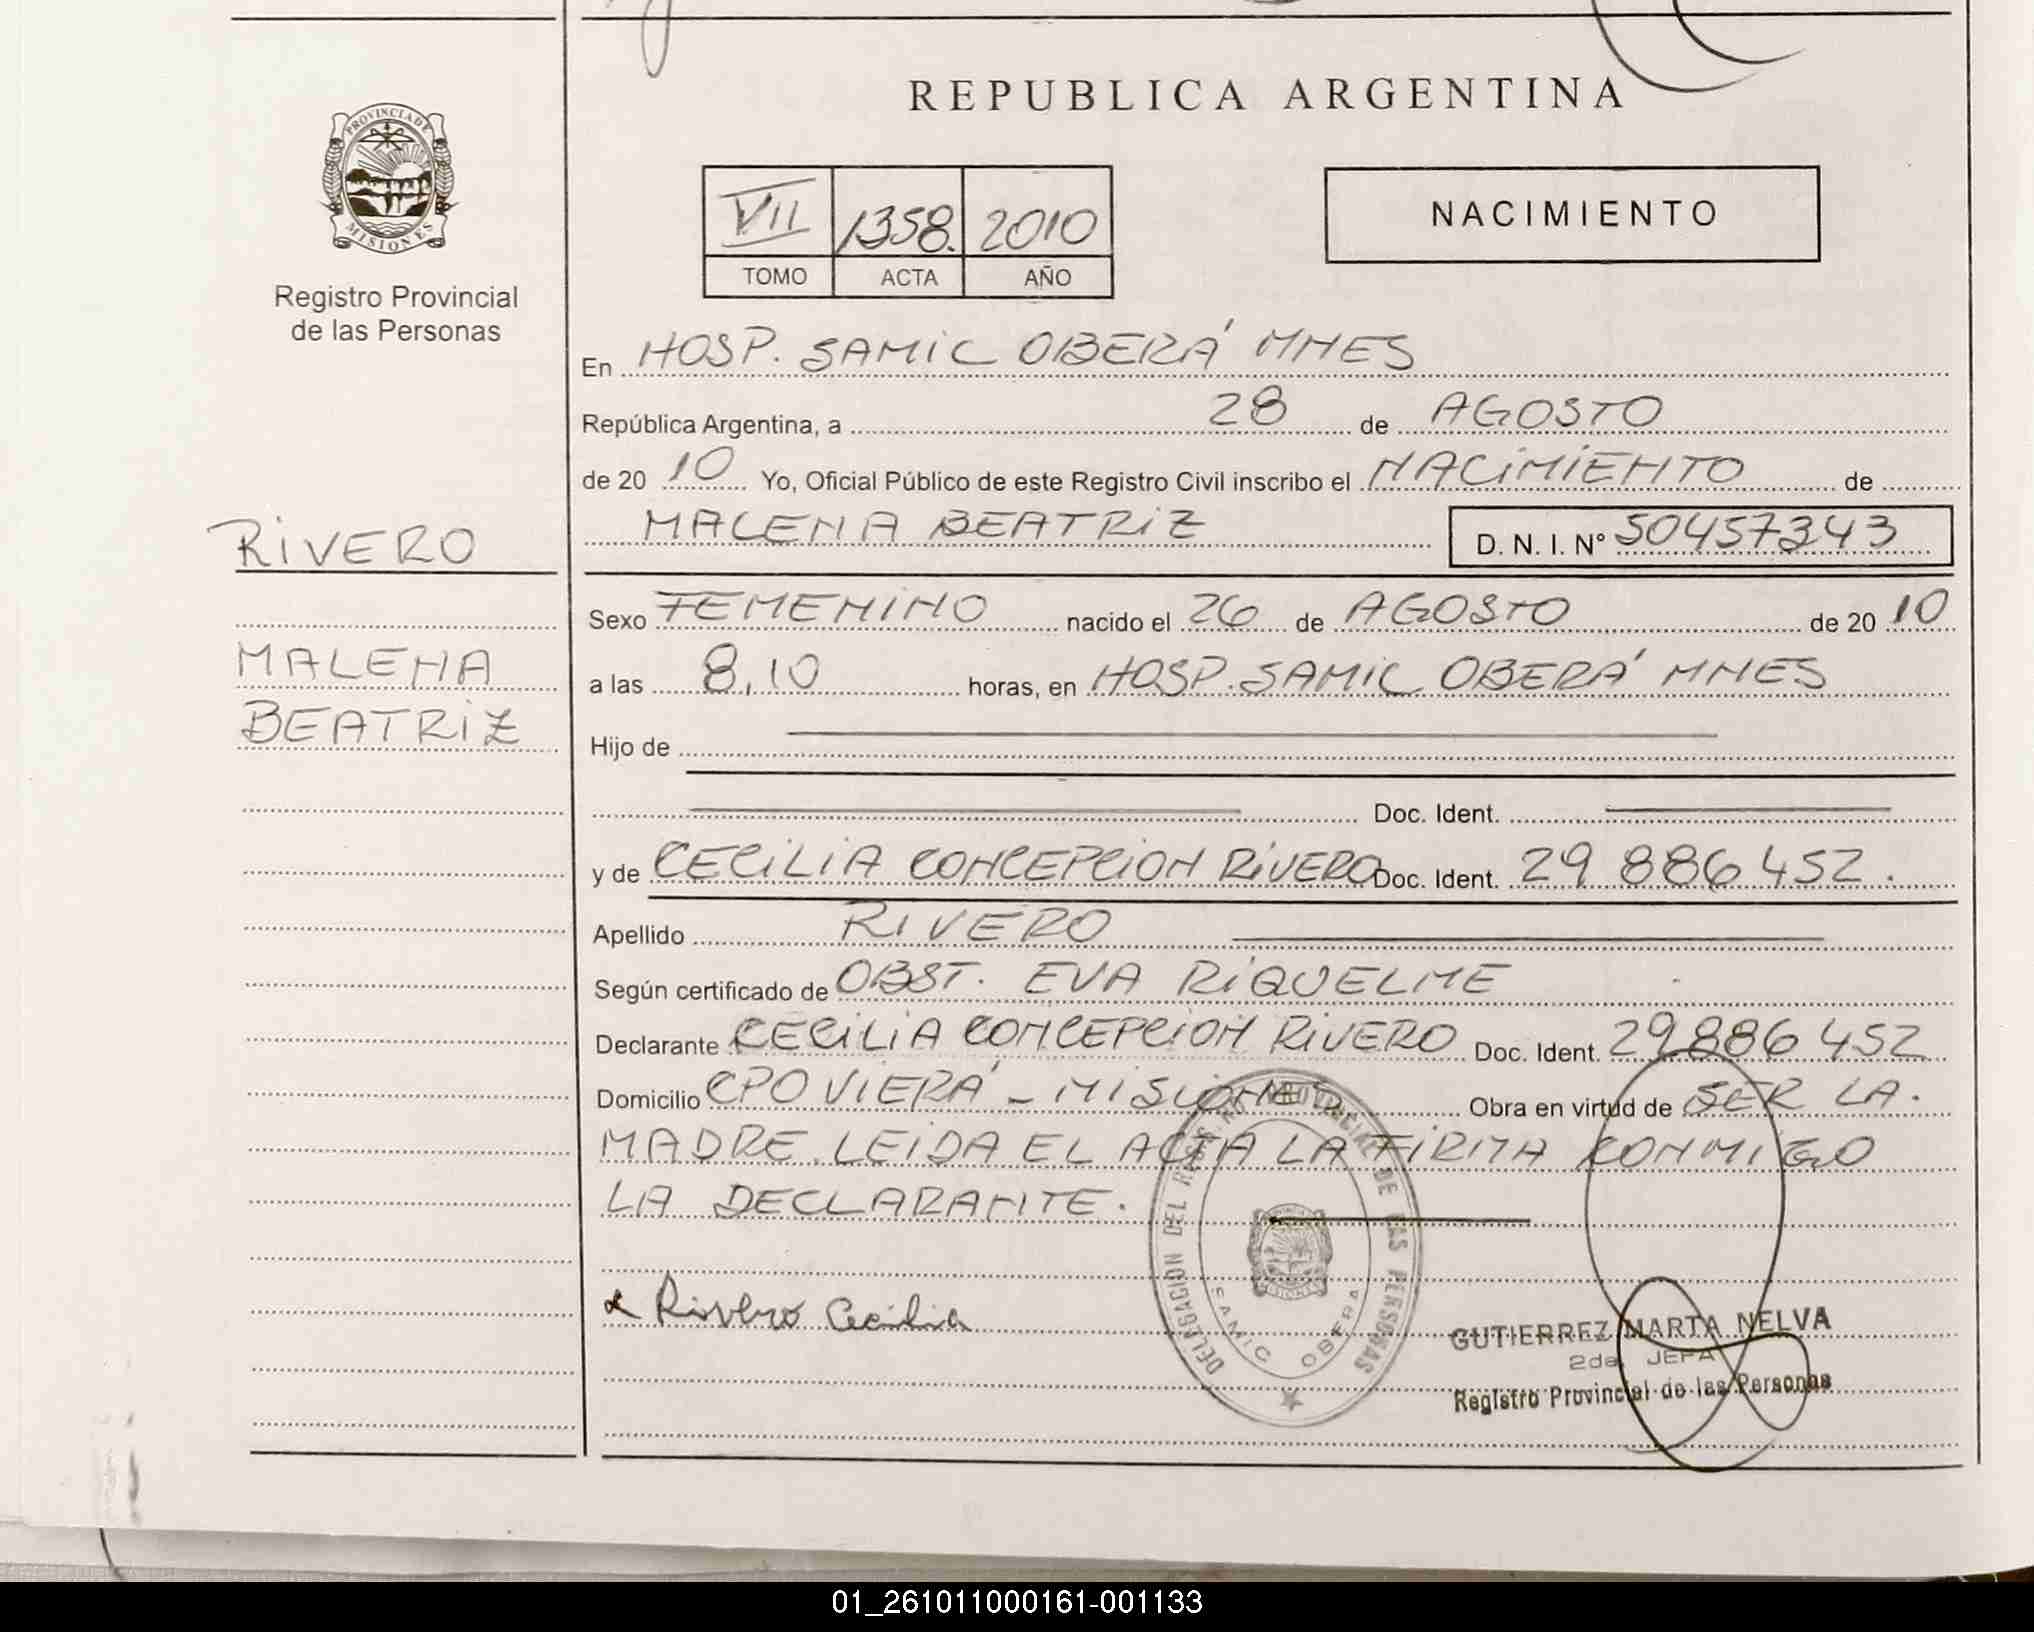 REPUBLICA ARGENTINA
PROVINCIA DE
MISIONES
Registro Provincial
de las Personas
VII 1358. 2010
TOMO ACTA AÑO
NACIMIENTO
En HOSP. SAMIC OBERÁ MNES
República Argentina, a 28 de AGOSTO
de 20 10 Yo, Oficial Público de este Registro Civil inscribo el NACIMIENTO de
MALENA BEATRIZ D. N. I. N° 50457343
RIVERO
MALENA
BEATRIZ
Sexo FEMENINO nacido el 26 de AGOSTO de 20 10
a las 8,10 horas, en HOSP. SAMIC OBERÁ MNES
Hijo de
Doc. Ident.
y de CECILIA CONCEPCION RIVERO Doc. Ident. 29 886 452.
Apellido RIVERO
Según certificado de OBST. EVA RIQUELME
Declarante CECILIA CONCEPCION RIVERO Doc. Ident. 29886 452
Domicilio CPO VIERÁ - MISIONES Obra en virtud de SER LA.
MADRE. LEIDA EL ACTA LA FIRMA CONMIGO
LA DECLARANTE.
Rivero Cecilia
DELEGACION DEL REGISTRO PROVINCIAL DE LAS PERSONAS
SAMIC OBERA
GUTIERREZ MARTA NELVA
2da. JEFA
Registro Provincial de las Personas
01_261011000161-001133